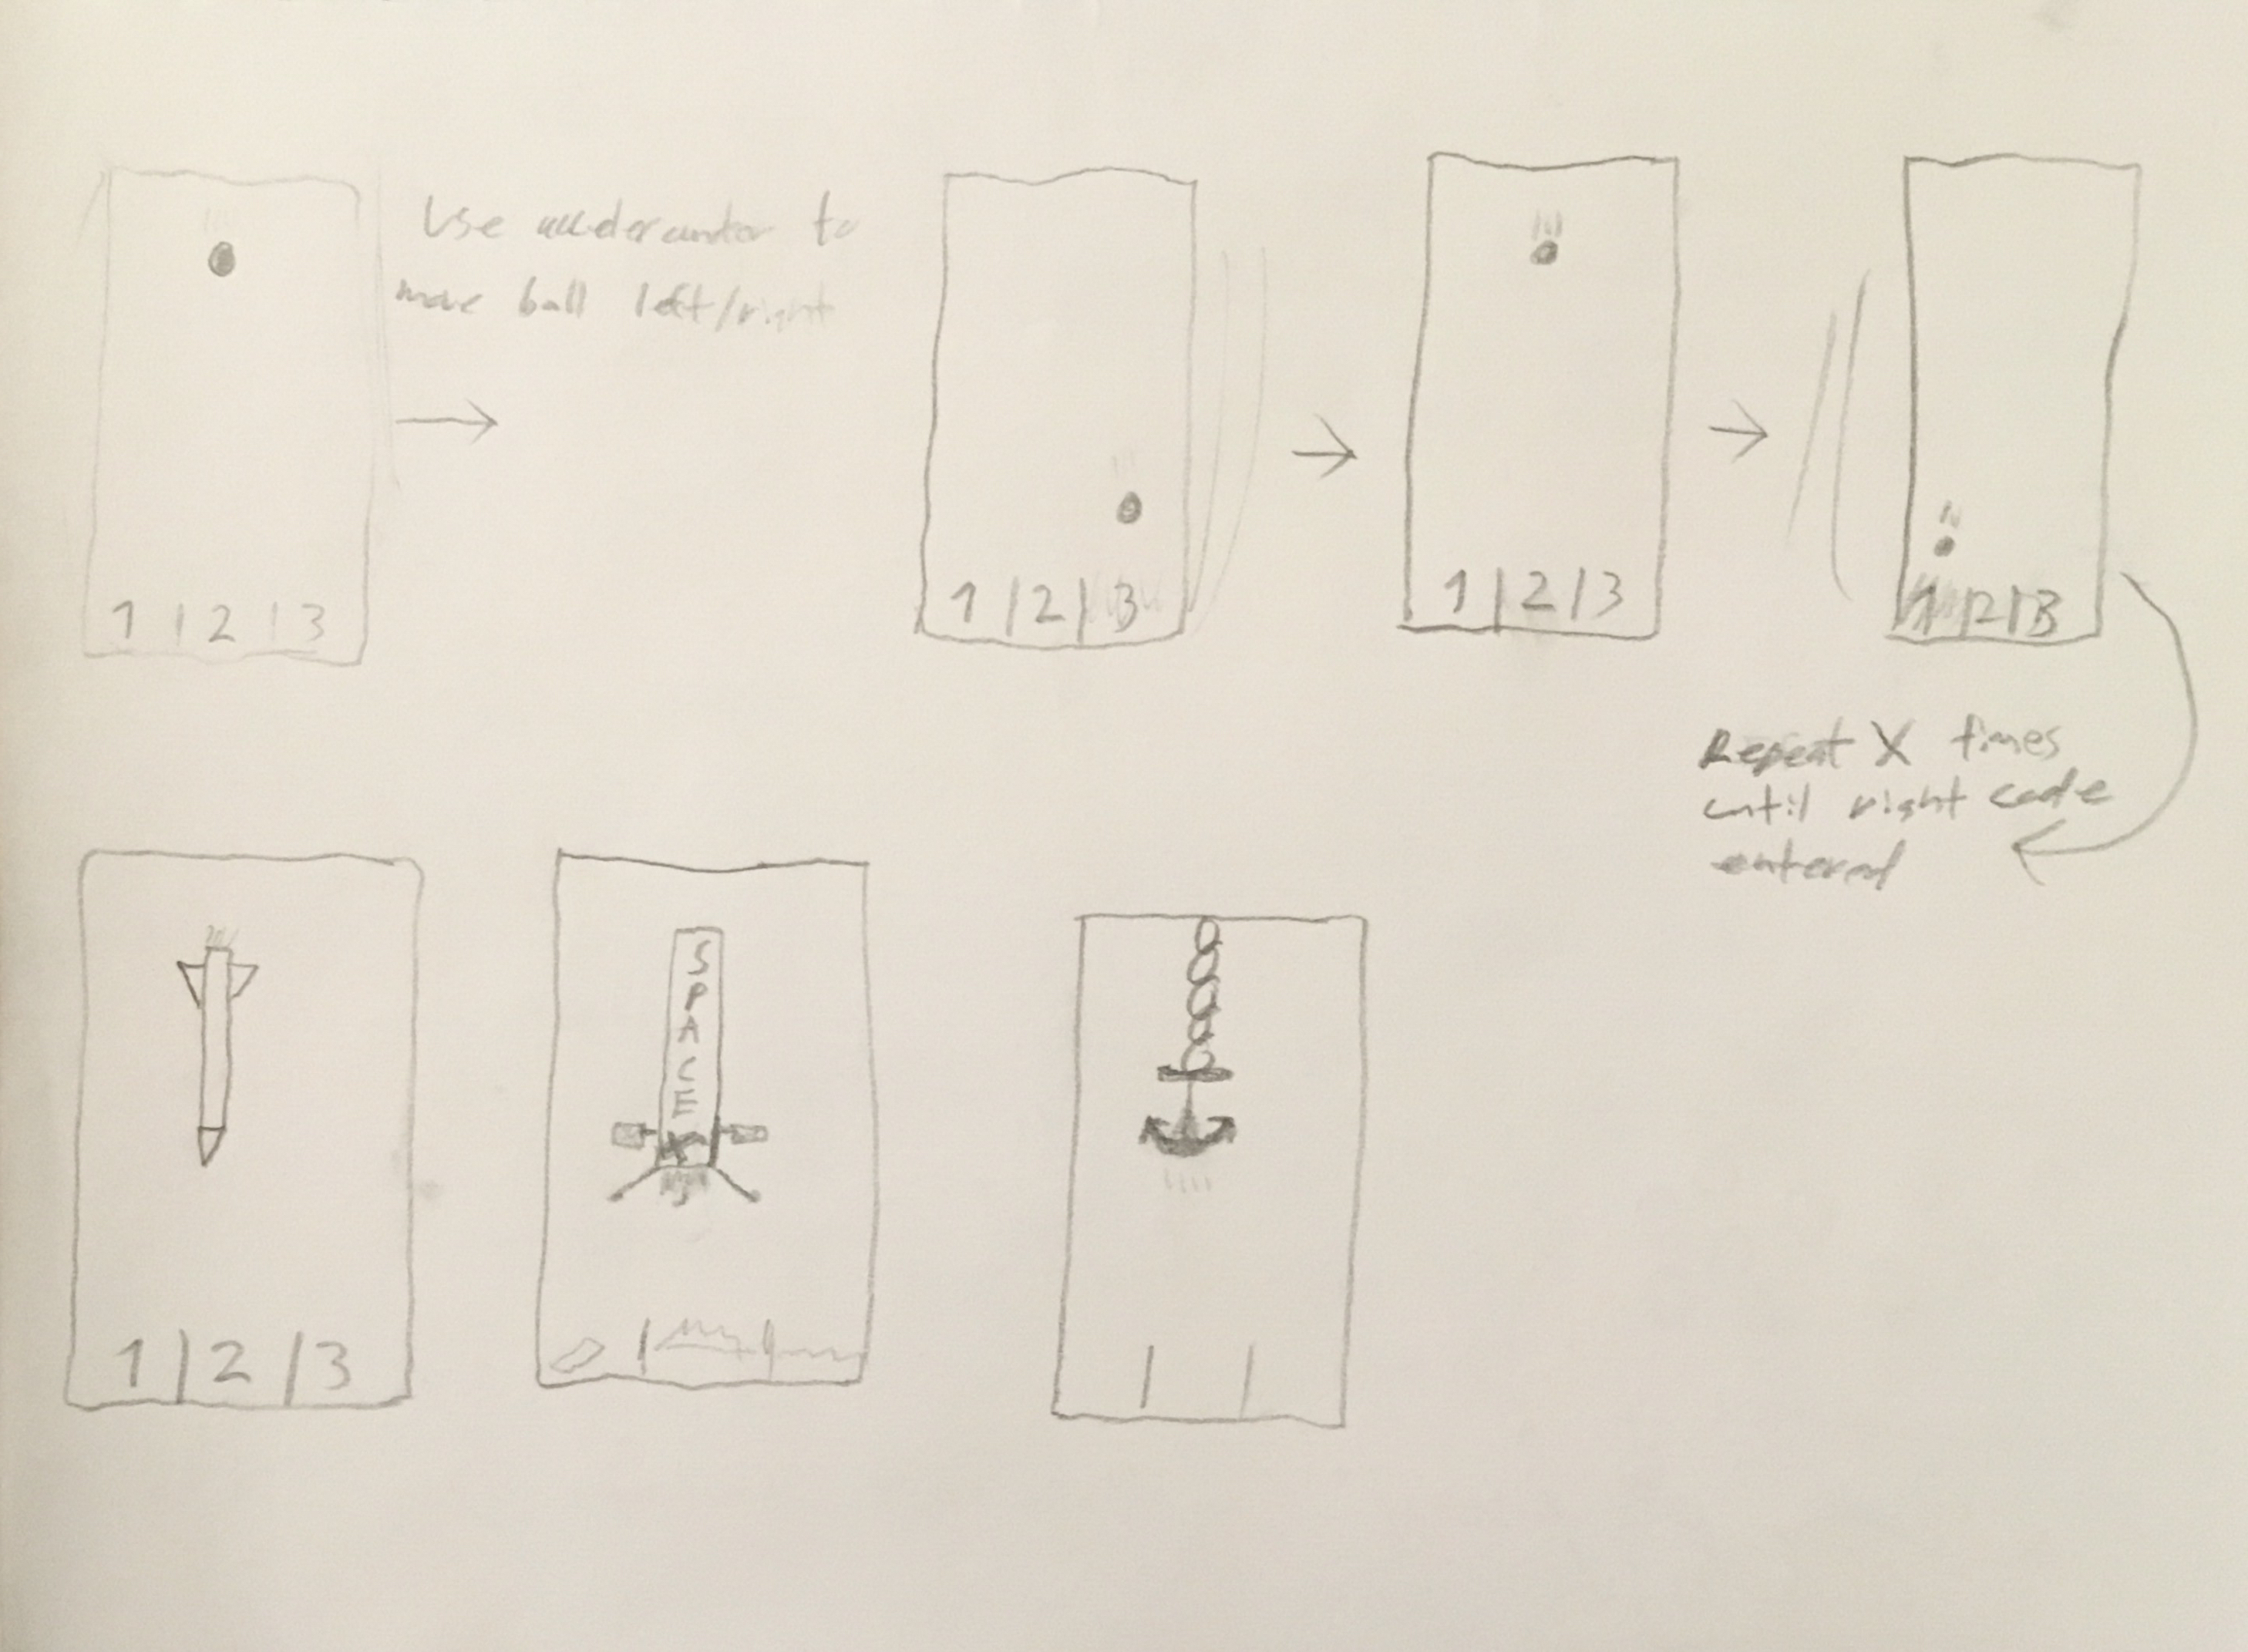 Use accelerometer to
move ball left/right
1 | 2 | 3
1 | 2 | 3
1 | 2 | 3
1 | 2 | 3
Repeat X times
until right code
entered
1 | 2 | 3
SPACEX